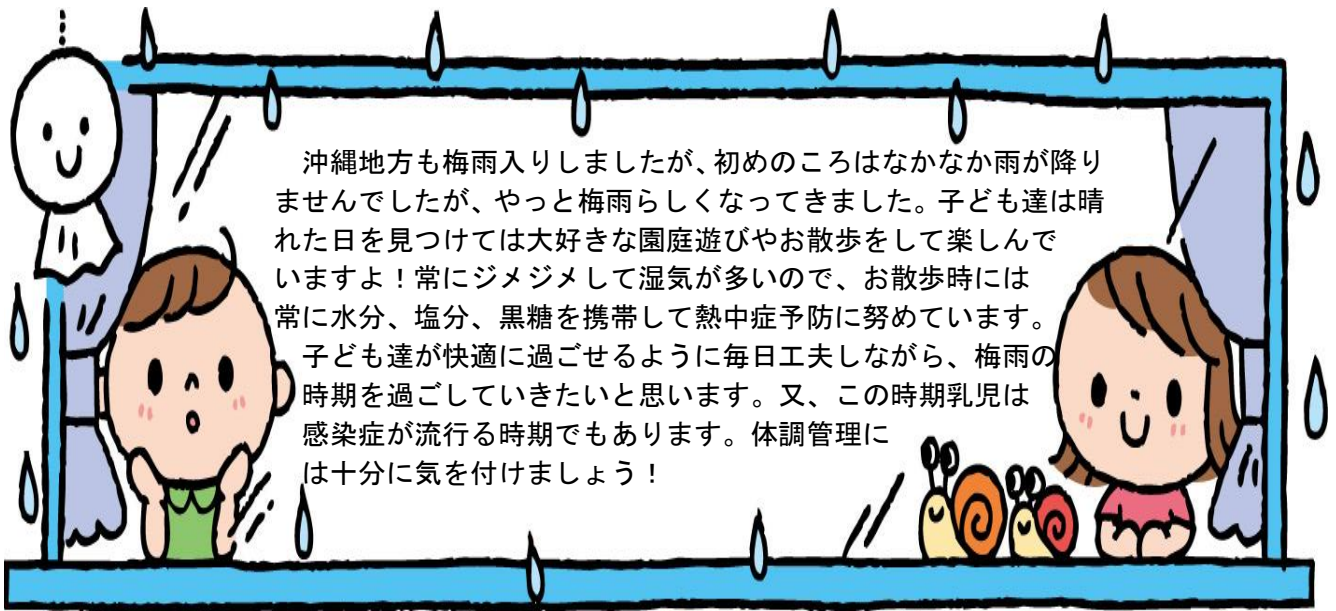 沖縄地方も梅雨入りしましたが、初めのころはなかなか雨が降り
ませんでしたが、やっと梅雨らしくなってきました。子ども達は晴
れた日を見つけては大好きな園庭遊びやお散歩をして楽しんで
いますよ！常にジメジメして湿気が多いので、お散歩時には
常に水分、塩分、黒糖を携帯して熱中症予防に努めています。
子ども達が快適に過ごせるように毎日工夫しながら、梅雨の
時期を過ごしていきたいと思います。又、この時期乳児は
感染症が流行る時期でもあります。体調管理に
は十分に気を付けましょう！